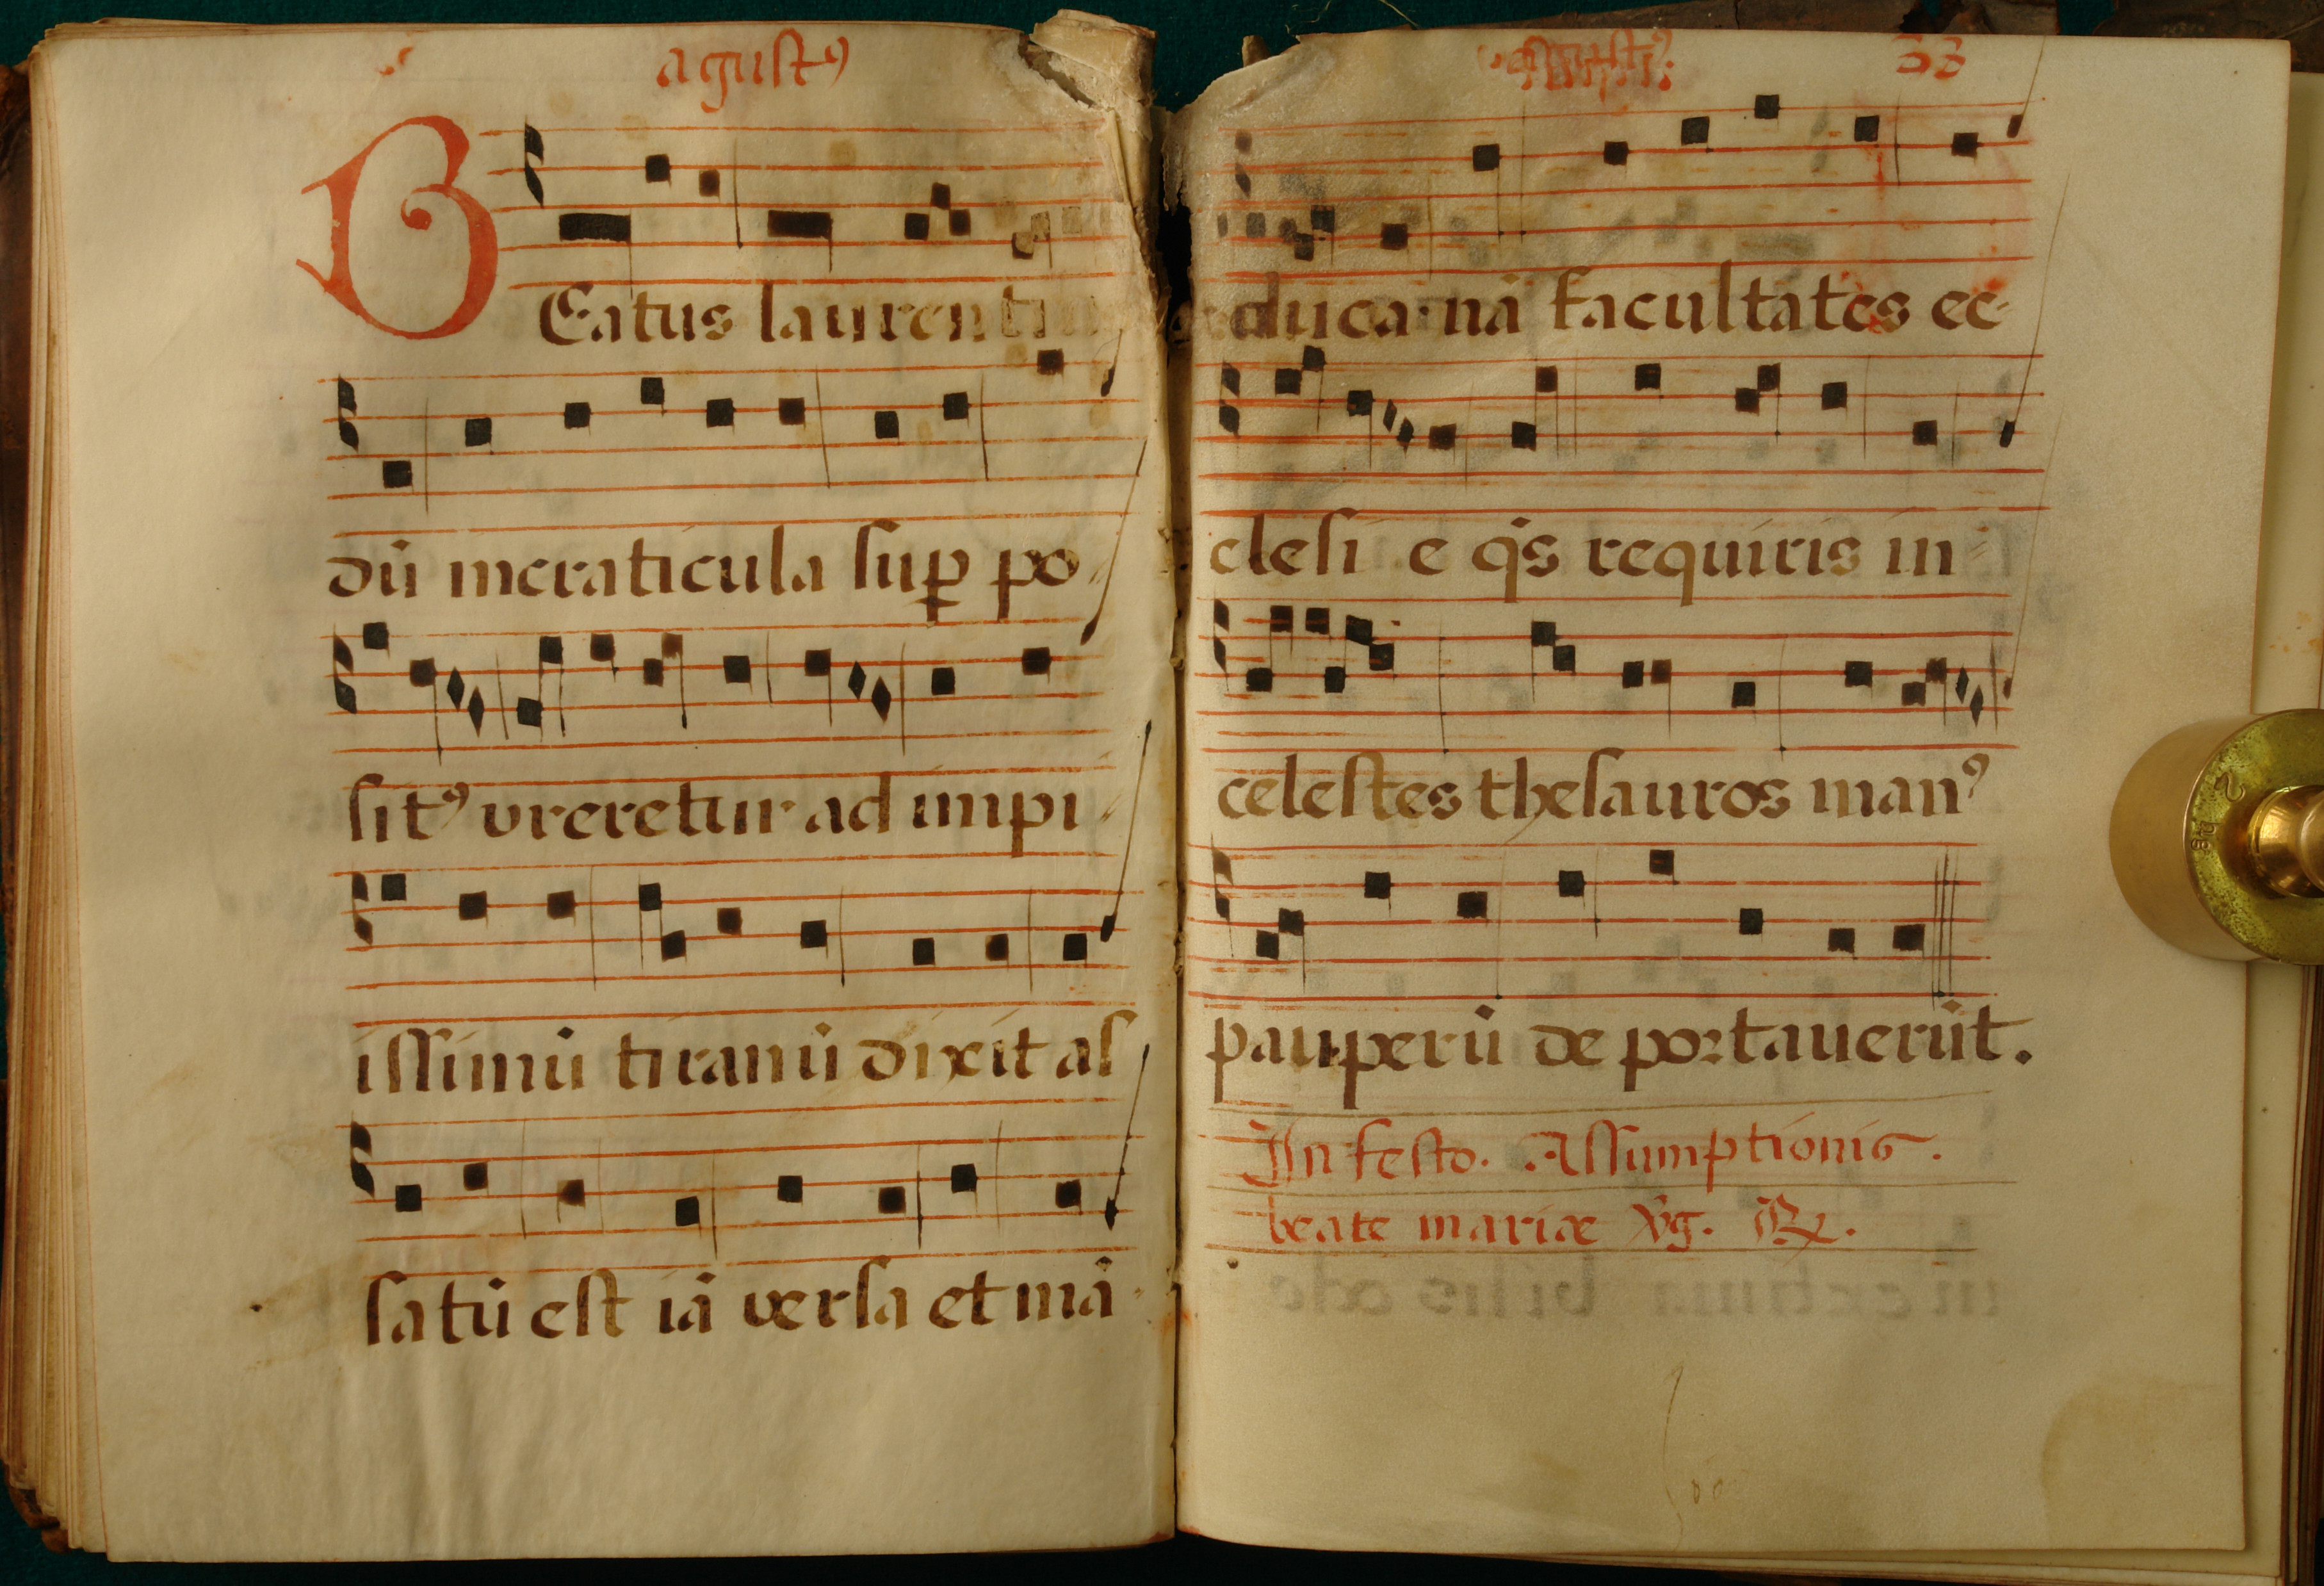 agustꝰ
BEatus laurenti
dū incraticula suꝑ po-
sitꝰ vreretur ad impi-
issimū tiranū dixit as
satū est iā versa et mā-
33
duca· nā facultates ec-
clesi e qͥs requiris in-
celestes thesauros manꝰ
pauperū de portauerūt.
In festo. Assumptionis.
beate mariæ v̄g. ℟.